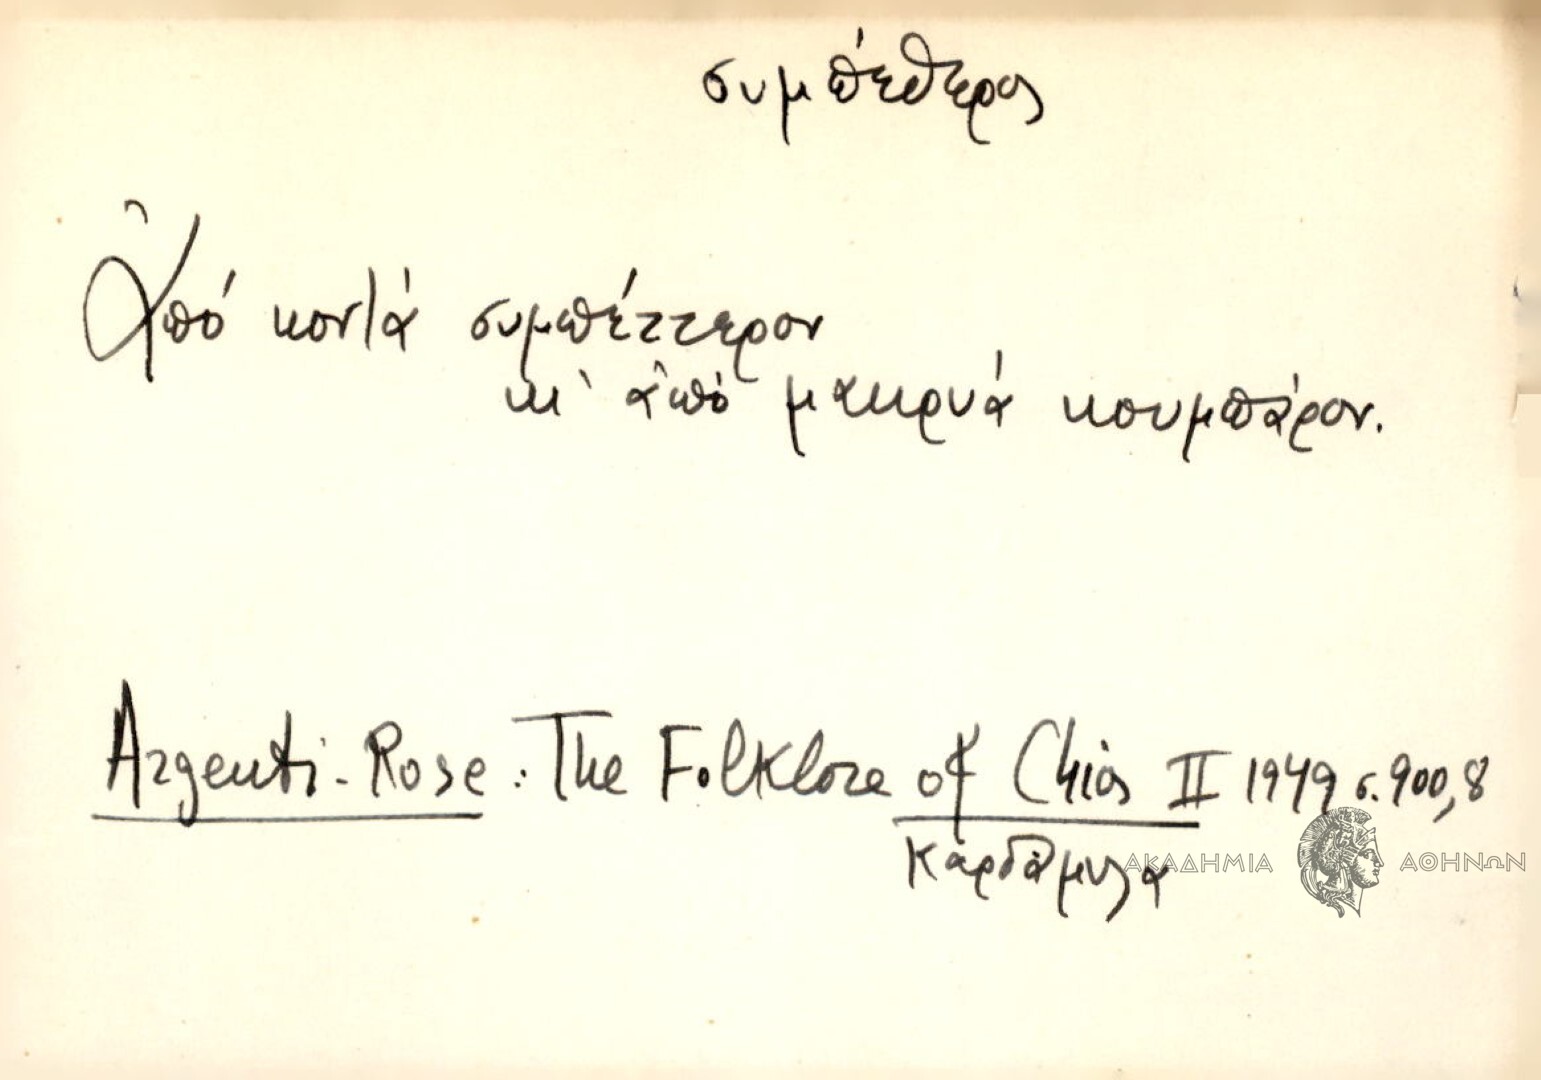 συμπέθερος
Ἀπό κοντά συμπέττερον
κι ἀπό μακρυά κουμπάρον.
Argenti-Rose: The Folklore of Chios II 1949 σ. 900,8
Καρδάμυλα
ΑΚΑΔΗΜΙΑ ΑΘΗΝΩΝ